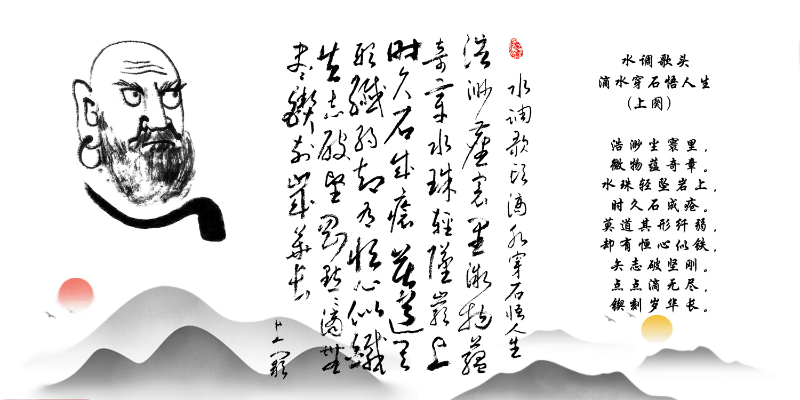 水调歌头
滴水穿石悟人生
(上阕)
浩渺尘寰里,
微物蕴奇章。
水珠轻坠岩上,
时久石成疮。
莫道其形纤弱,
却有恒心似铁,
矢志破坚刚。
点点滴无尽,
锲刻岁华长。
水调歌头滴水穿石悟人生
浩渺塵寰里微物蘊
奇章水珠輕墜巖上
时久石成瘡莫道其
形纖弱却有恒心似鐵
矢志破堅刚點點滴無
尽鍥刻歲華长
上阕